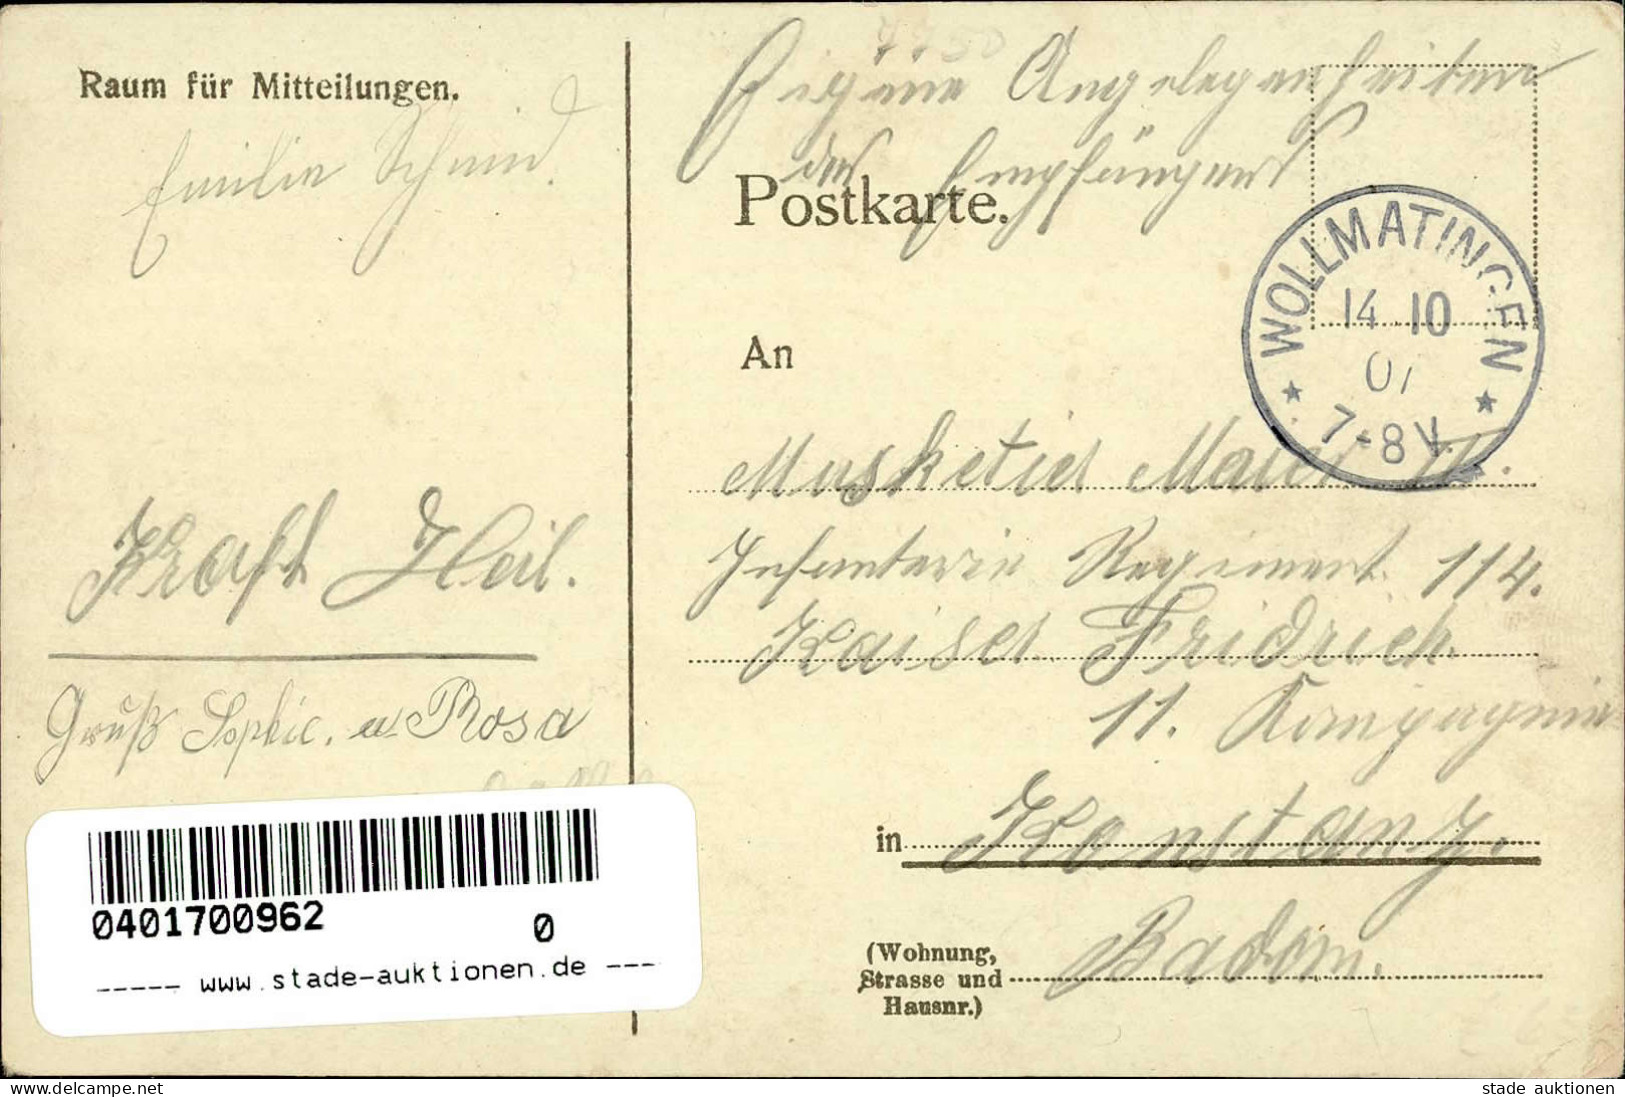 Raum für Mitteilungen.
Emilie Schmid.
Kraft Heil.
Gruß Sophie. u. Rosa
7750
Eigene Angelegenheiten
des Empfängers
Postkarte.
WOLLMATINGEN
14.10
07
7-8V.
An
Musketier Maier III.
Infanterie Regiment 114.
Kaiser Fridrich.
11. Kompagnie
in Konstanz.
Baden.
(Wohnung,
Strasse und
Hausnr.)
0401700962
0
----- www.stade-auktionen.de ---
www.delcampe.net
stade auktionen